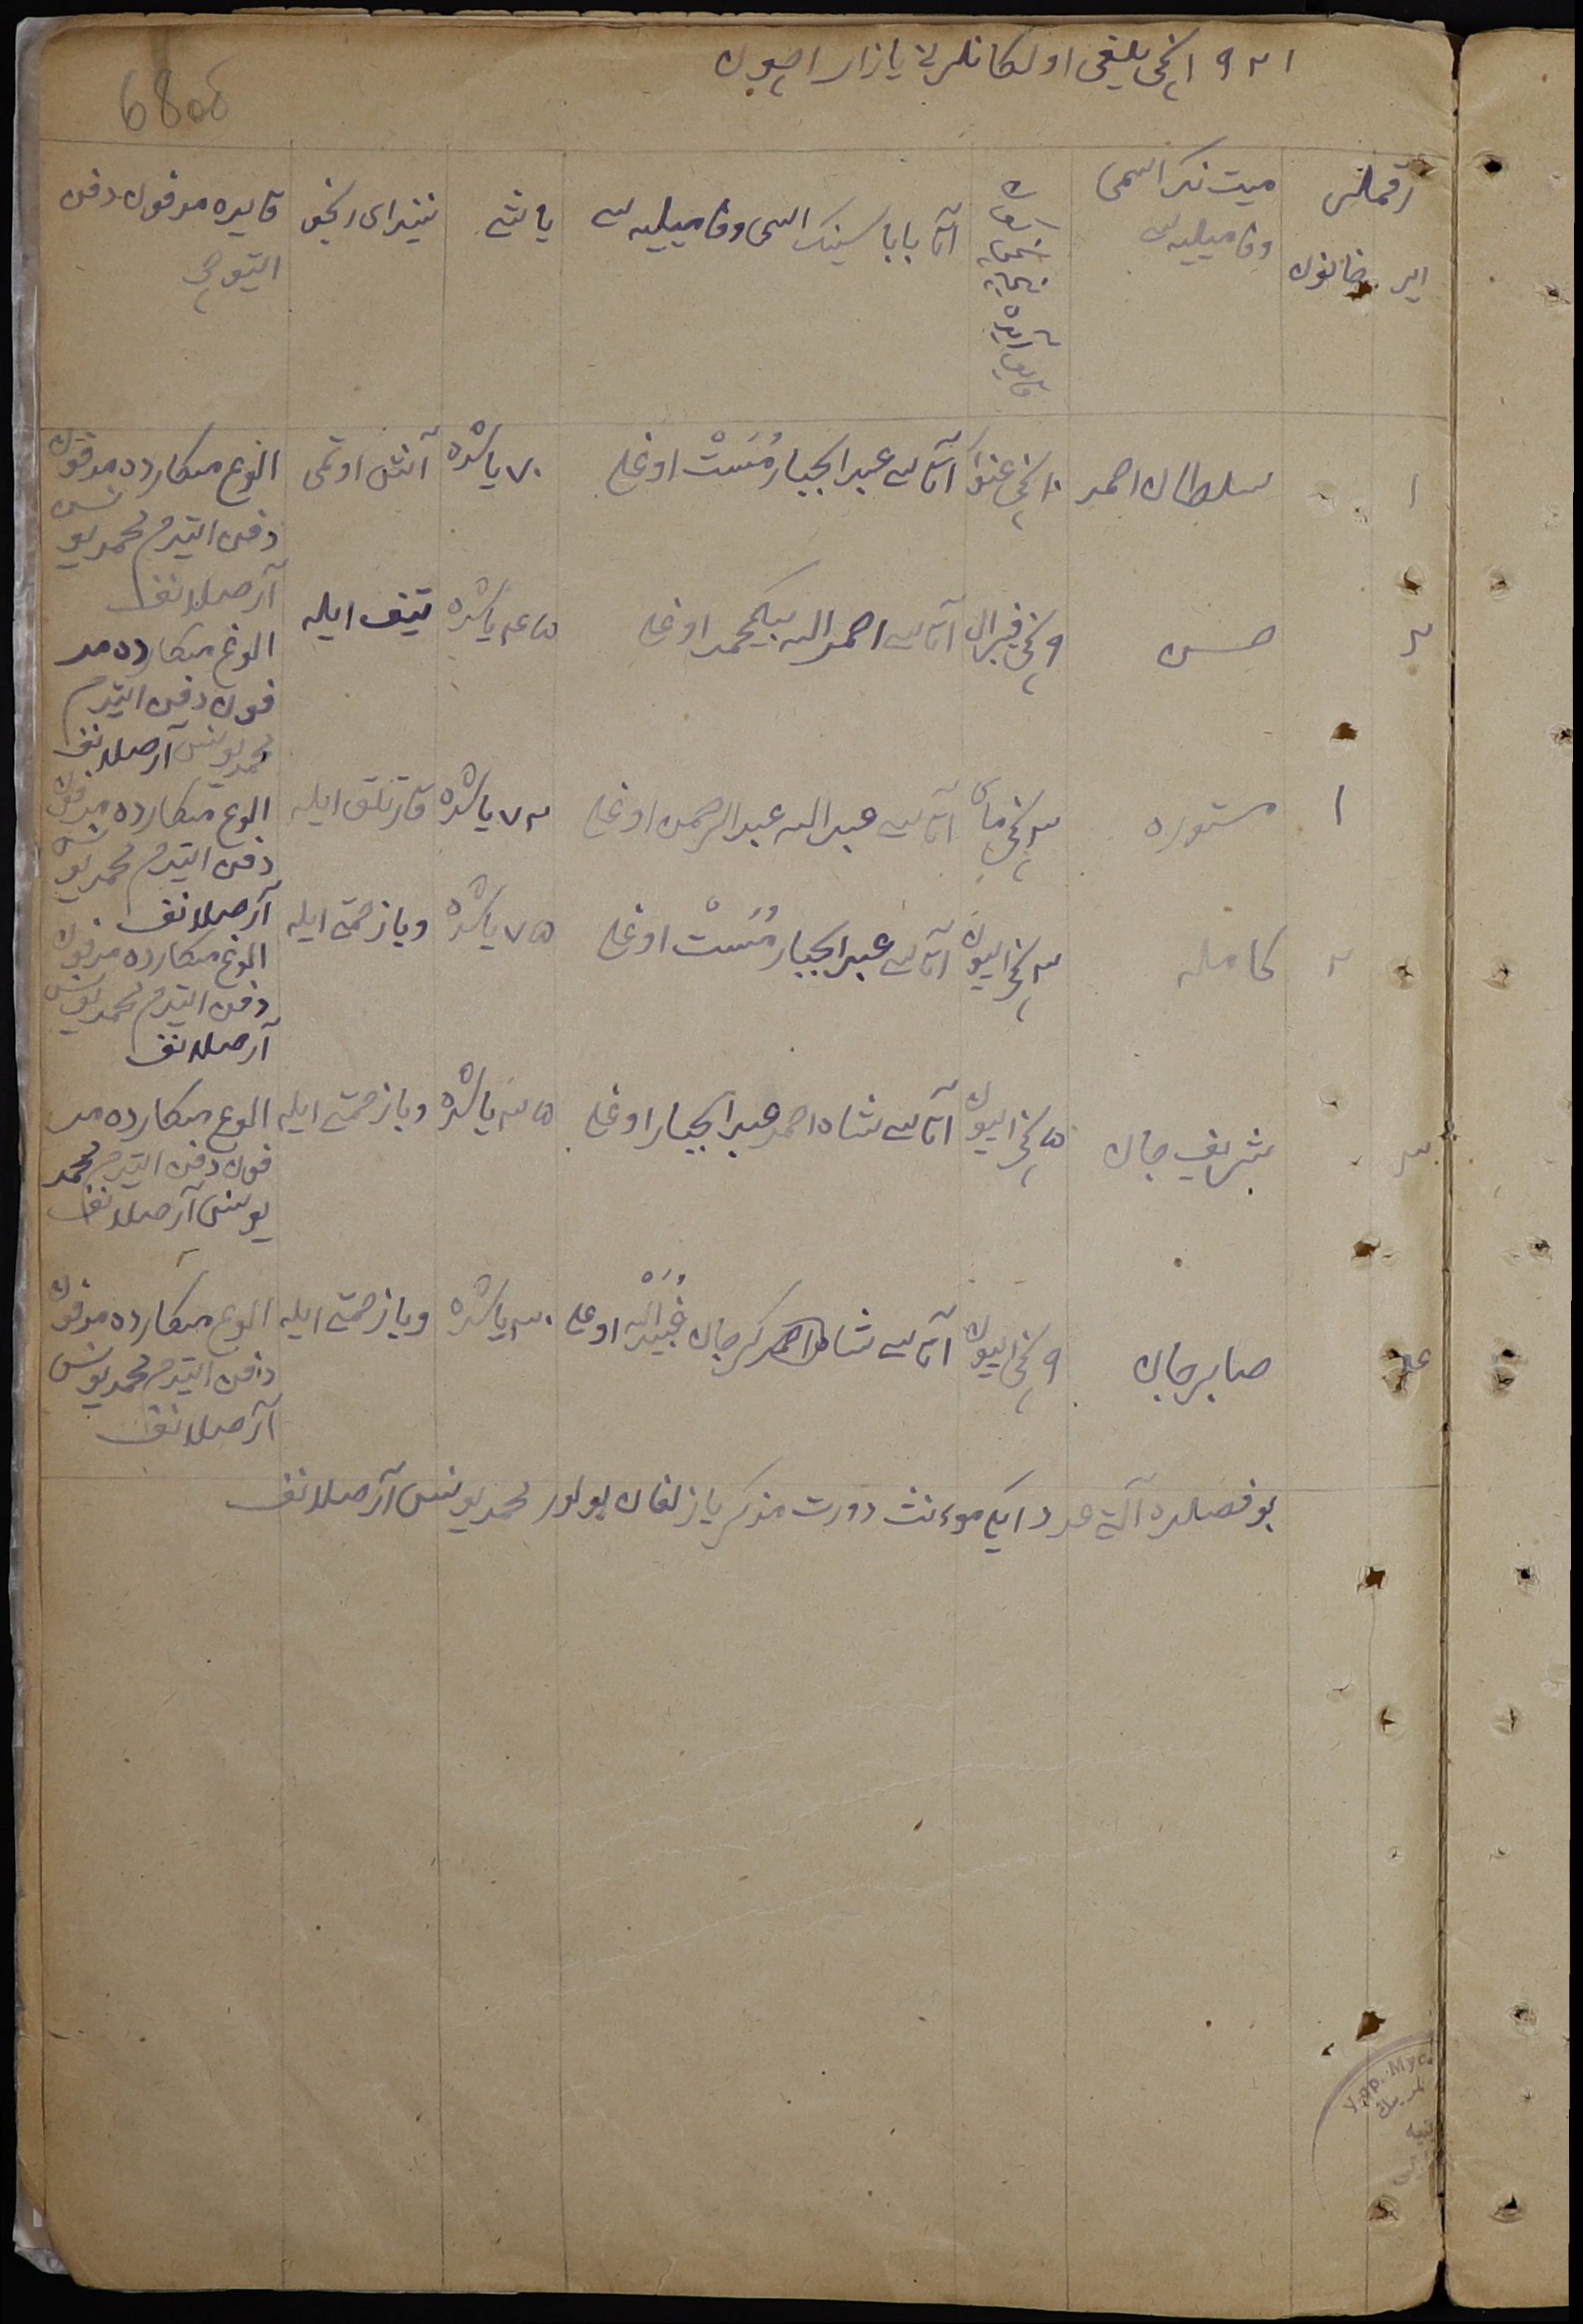 ١٩٢١ نچی یلغی اولکانلرنی یازار اچون
680б
رقملری
ایر خاتون
میت نک اسمی
وفامیلیه سی
قایو آیده
آتا باباسینک اسمی وفامیلیه سی
یاشی
نیندای رنجو
قایده مدفون دفن
ایتوچی
١ سلطان احمد ١٠ نچی غنوار آتاسی عبدالجبار مُسَتْ اوغلی ٧٠ یاشده آنش اوتمی الوغ میکارده مدفون
دفن ایتدم محمد یونس
آرصلانف
٢ حسن ٩ نچی فیرال آتاسی احمدالله بیکمحمد اوغلی ٤٥ یاشده تیف ایله الوغ میکارده مد
فون دفن ایتدم
محمد یونس آرصلانف
١ مستوره ٣ نچی مای آتاسی عبدالله عبدالرحمن اوغلی ٧٣ یاشده قارتلق ایله الوغ میکارده مدفون
دفن ایتدم محمد یونس
آرصلانف
٢ کامله ٣ نچی ایون آتاسی عبدالجبار مُسَتْ اوغلی ٧٥ یاشده وبا زحمتی ایله الوغ میکارده مدفون
دفن ایتدم محمد یونس
آرصلانف
٣ شریف جان ٥ نچی ایون آتاسی شاه احمد عبدالجبار اوغلی ٣٥ یاشده وبا زحمتی ایله الوغ میکارده مد
فون دفن ایتدم محمد
یونس آرصلانف
٤ صابرجان ٩ نچی ایون آتاسی شاکرجان عُبَیْدُالله اوغلی ٣٠ یاشده وبا زحمتی ایله الوغ میکارده مدفون
دفن ایتدم محمد یونس
آرصلانف
بو فصلده آلتی عدد ایکی موءنث دورت مذکر یازلغان بولور محمد یونس آرصلانف
Урр. Мус.